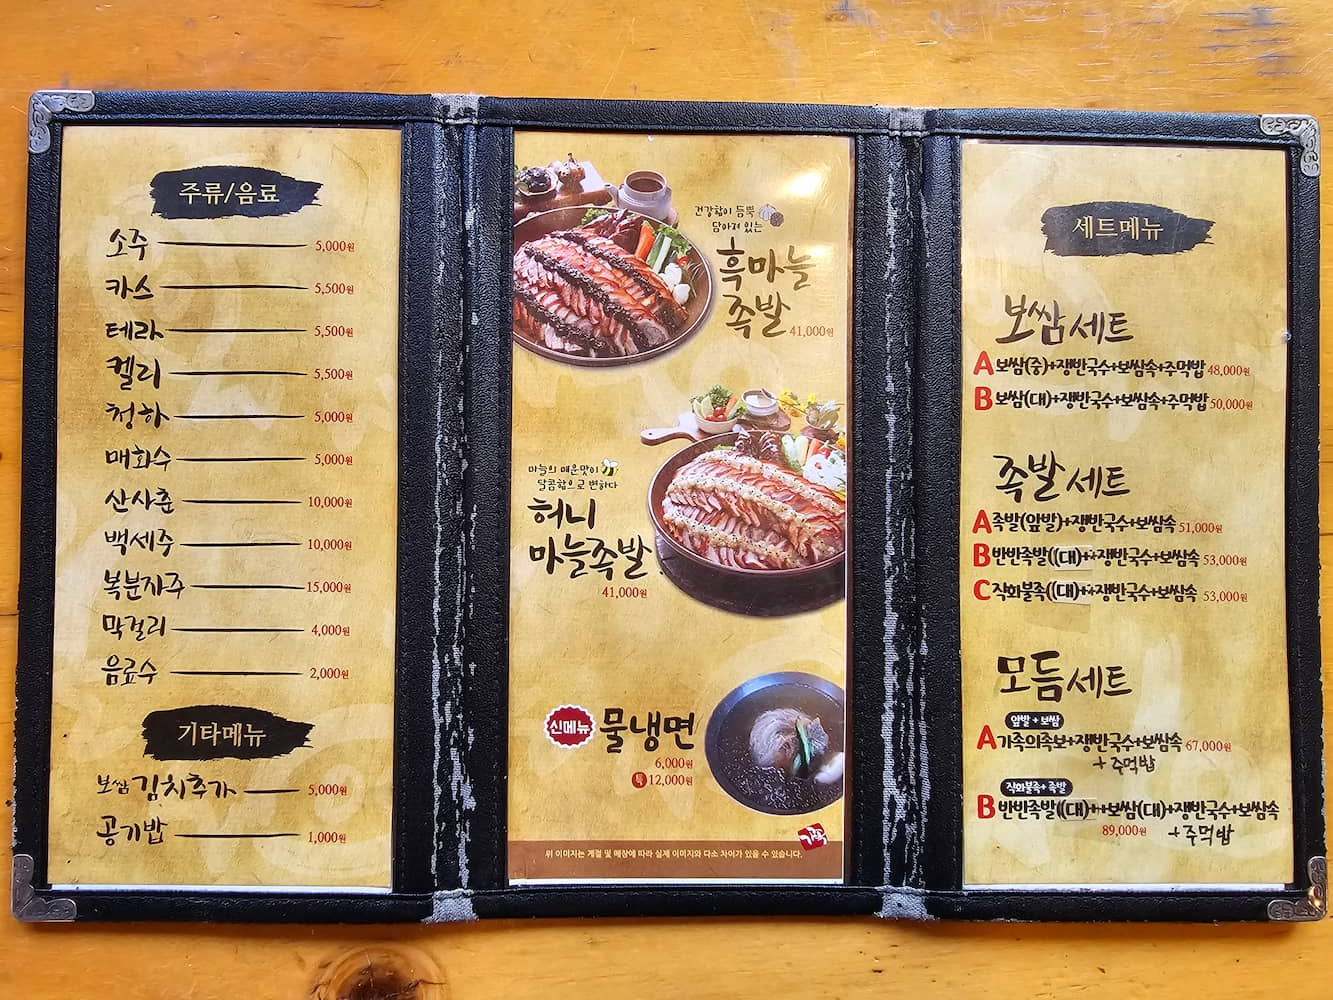 주류/음료
소주 5,000원
카스 5,500원
테라 5,500원
켈리 5,500원
청하 5,000원
매화수 5,000원
산사춘 10,000원
백세주 10,000원
복분자주 15,000원
막걸리 4,000원
음료수 2,000원
기타메뉴
보쌈 김치추가 5,000원
공기밥 1,000원
건강함이 듬뿍
담아져 있는
흑마늘
족발 41,000원
마늘의 매운맛이
달콤함으로 변하다
허니
마늘족발
41,000원
신메뉴 물냉면
6,000원
특 12,000원
가족
위 이미지는 계절 및 매장에 따라 실제 이미지와 다소 차이가 있을 수 있습니다.
세트메뉴
보쌈 세트
A 보쌈(중)+쟁반국수+보쌈속+주먹밥 48,000원
B 보쌈(대)+쟁반국수+보쌈속+주먹밥 50,000원
족발 세트
A 족발(앞발)+쟁반국수+보쌈속 51,000원
B 반반족발((대)+쟁반국수+보쌈속 53,000원
C 직화불족((대)+쟁반국수+보쌈속 53,000원
모듬 세트
앞발 + 보쌈
A 가족의족보+쟁반국수+보쌈속 67,000원
+ 주먹밥
직화불족 + 족발
B 반반족발((대)+보쌈(대)+쟁반국수+보쌈속
89,000원 + 주먹밥